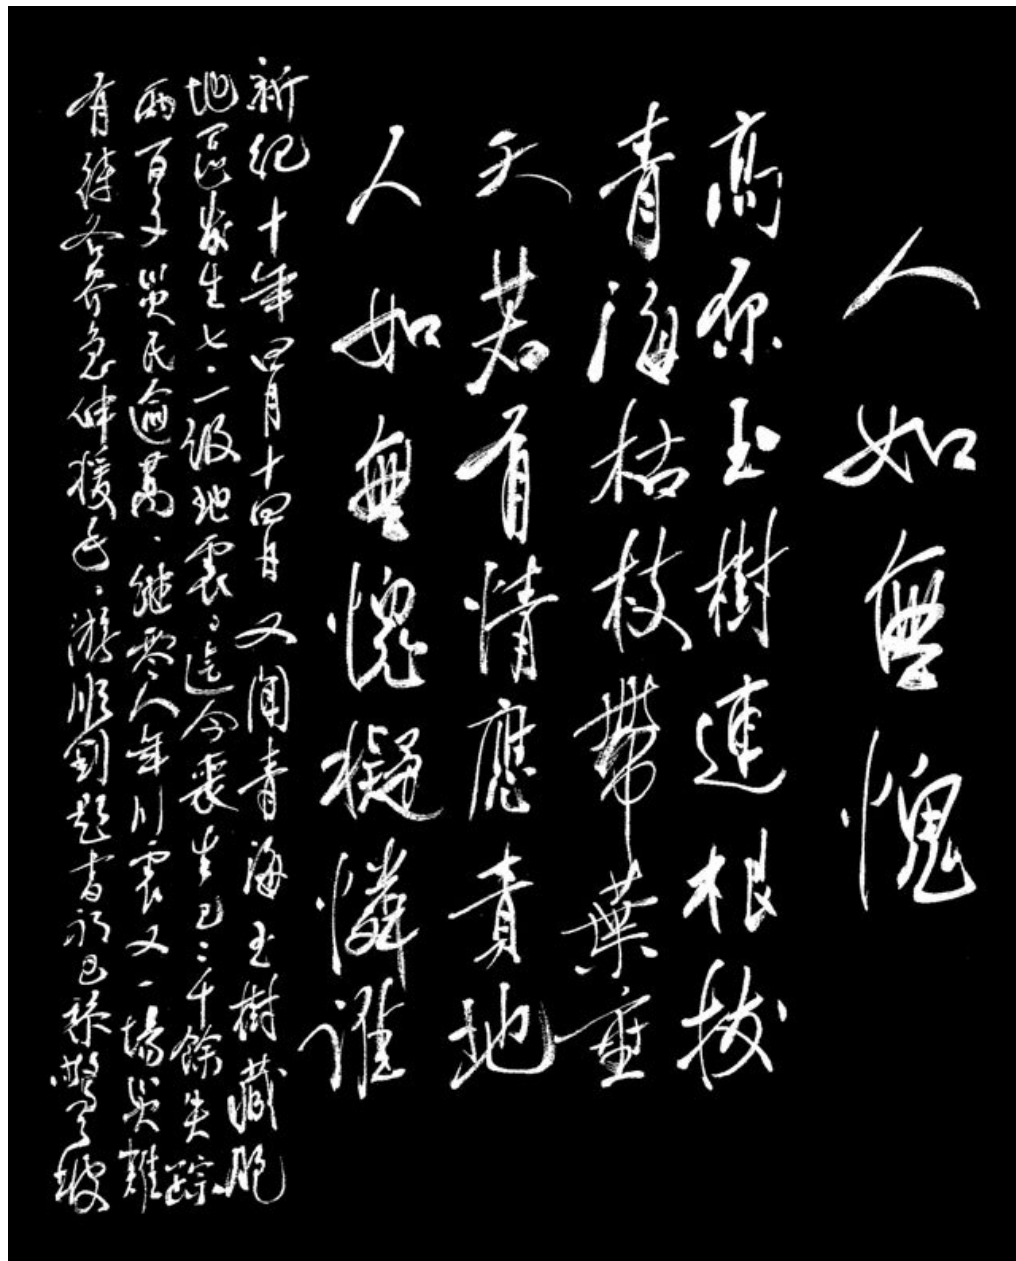 人如無愧
高原玉樹連根拔
青海枯枝帶葉垂
天若有情應責地
人如無愧擬憐誰
新紀十年四月十四日又聞青海玉樹藏胞
地區發生七·二級地震迄今喪生已二千餘失踪
兩百多災民逾萬、繼零八年川震又一場災難
有待各界急伸援手、游順釗題書於巴黎